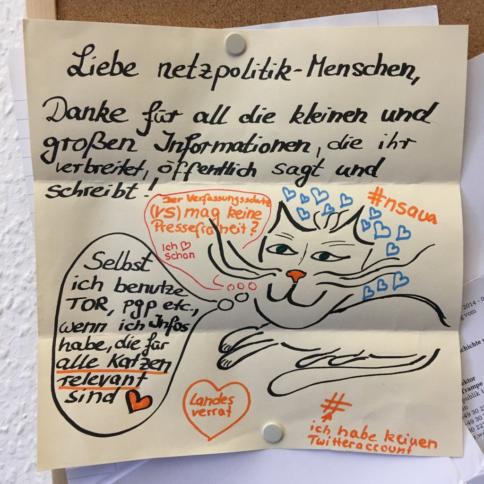 Liebe netzpolitik-Menschen,
Danke für all die kleinen und
großen Informationen, die ihr
verbreitet, öffentlich sagt und
schreibt!
Der Verfassungsschutz
(VS) mag keine
Pressefreiheit?
Ich ♡
schon
#nsaua
Selbst
ich benutze
TOR, pgp etc.,
wenn ich Infos
habe, die für
alle Katzen
relevant
sind
Landes
verrat
#
ich habe keinen
Twitteraccount
2014 - 0
vom